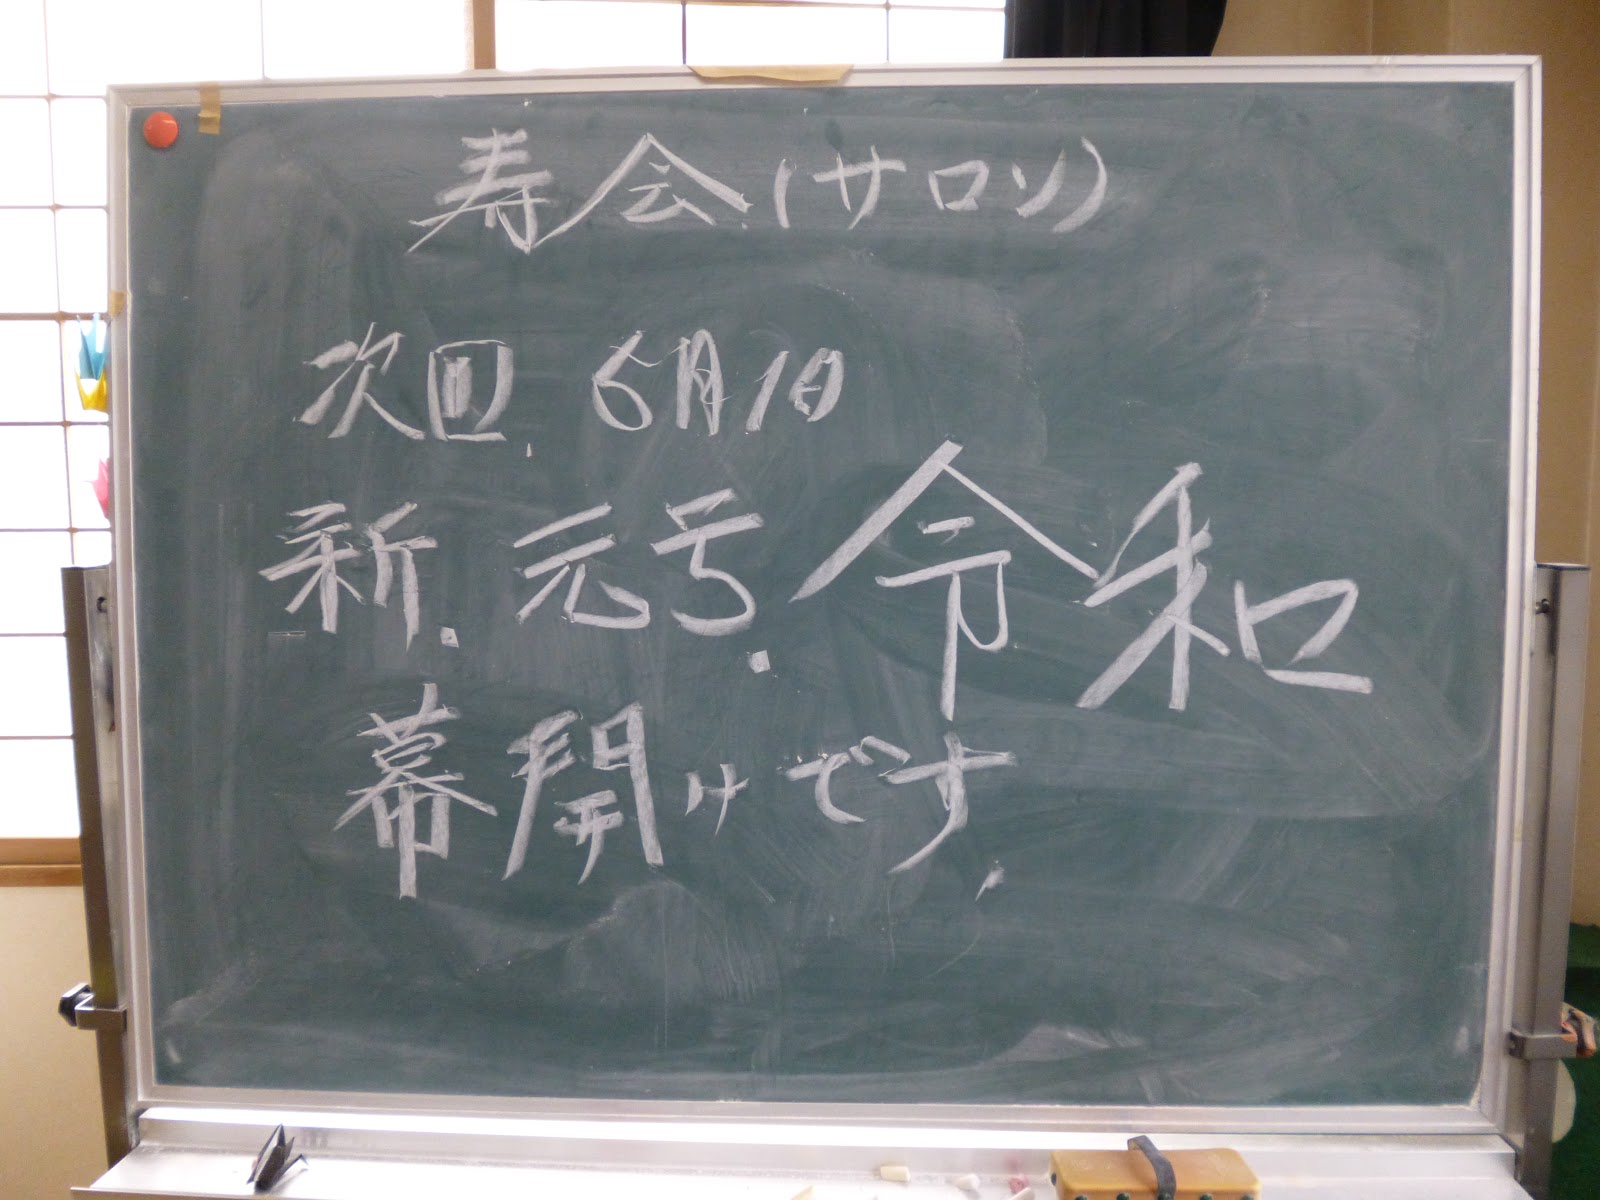 寿会(サロン)
次回 6月1日
新元号令和
幕開けです